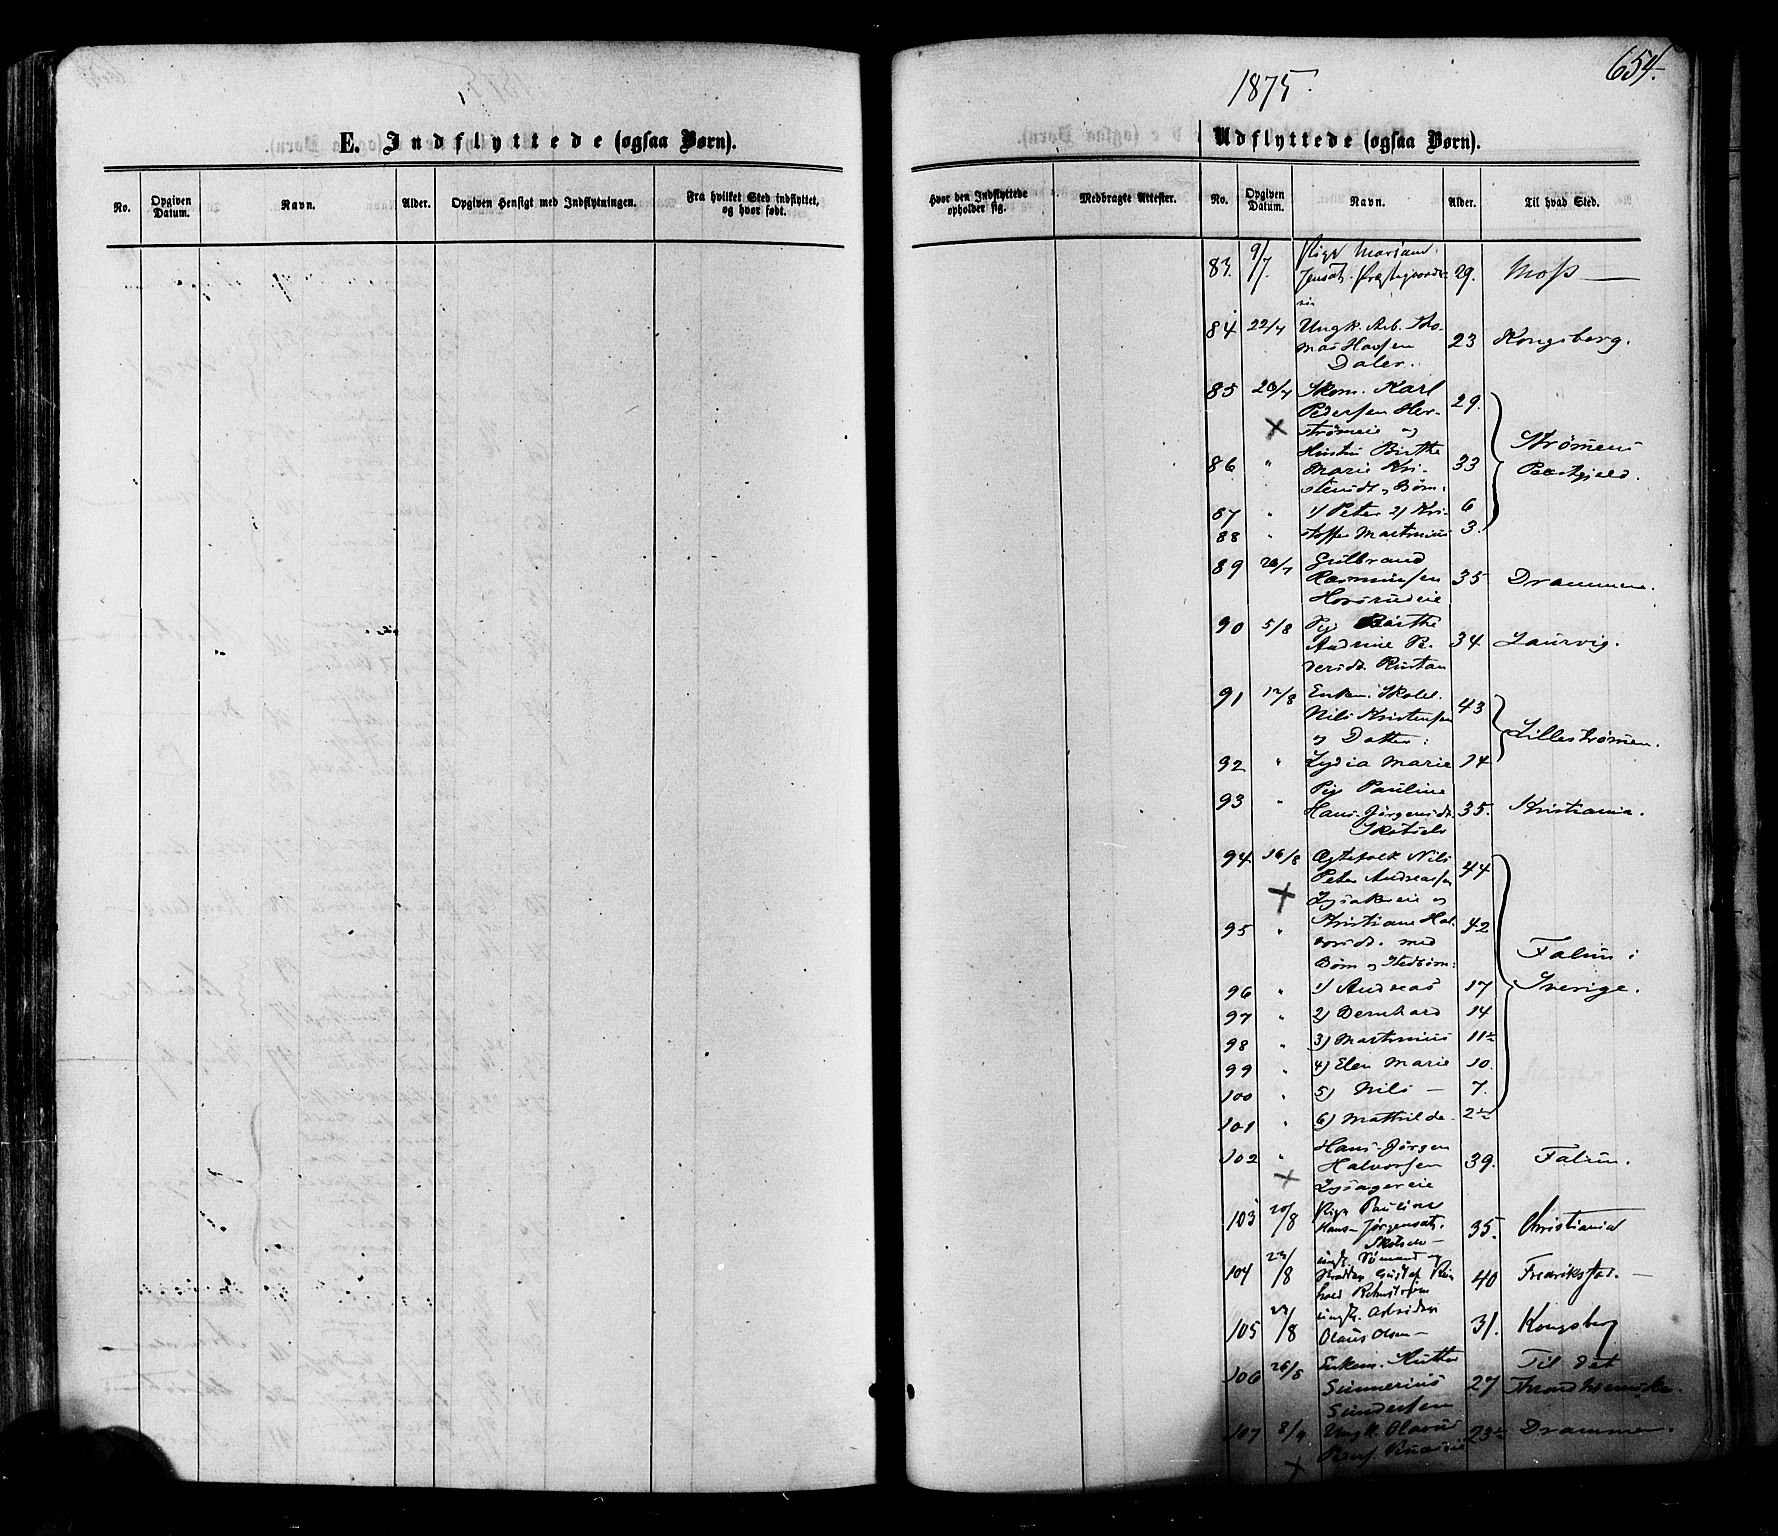 654.
1875.
E. Indflyttede (ogsaa Børn).
Udflyttede (ogsaa Børn).
No. Opgiven Datum. Navn. Alder. Opgiven Hensigt med Indflytningen. Fra hvilket Sted indflyttet, og hvor født.
Hvor den Indflyttede opholder sig. Medbragte Attester. No. Opgiven Datum. Navn. Alder. Til hvad Sted.
83. 9/7. Pige Mariane
Jensdt. Præstegaards- 29. Moss —
eie
84 22/7 Ungk. Arb. Tho-
mas Hansen 23 Kongsberg.
Daler.
85 20/7 Skom. Karl
Pedersen Her- 29.
strømeie og
Strømens
Hustru Birthe
86 " Marie Kri- 33 Præstgjeld.
stensdt. og Børn:
87 " 1) Peter 2) Kri- 6
88 " stoffer Martinius 3.
89 20/7 Gulbrand
Rasmussen 35 Drammen.
90 5/8 Pig. Birthe
Andrine Pe- 34 Laurvig.
dersdt.
91 12/8 Enkem.
Nils Kristensen 43
og Datter: Lillestrømen.
92 " Lydia Marie 14
93 " Pig. Pauline
Hans-Jørgensdt. 35. Kristiania.
94 16/8 Ægtefolk Nils
Peter Andreassen 44
Lysakereie og
95 " Kristiane Hal- 42
vorsdt. med
Børn og Stedbørn: Falun i
96 " 1) Andreas 17 Sverige.
97 " 2) Bernhard 14
98 " 3) Martinius 11½
99 " 4) Elen Marie 10.
100 " 5) Nils — 7.
101 " 6) Mathilde 2½
102 " Hans-Jørgen
Halvorsen 39. Falun.
Lysagereie
103 20/8 Pige Pauline
Hans-Jørgensdt. 35. Christiania
104 23/8 Gustaf 40 Fredrikstad. —
105 23/8 Ungk. Arbeider
Olaus Olsen — 31. Kongsberg
106 26/8 Enkem. Til det
27 Throndhjemske.
Gundersen
107 8/9 Ungk. Olavus 23½ Drammen.